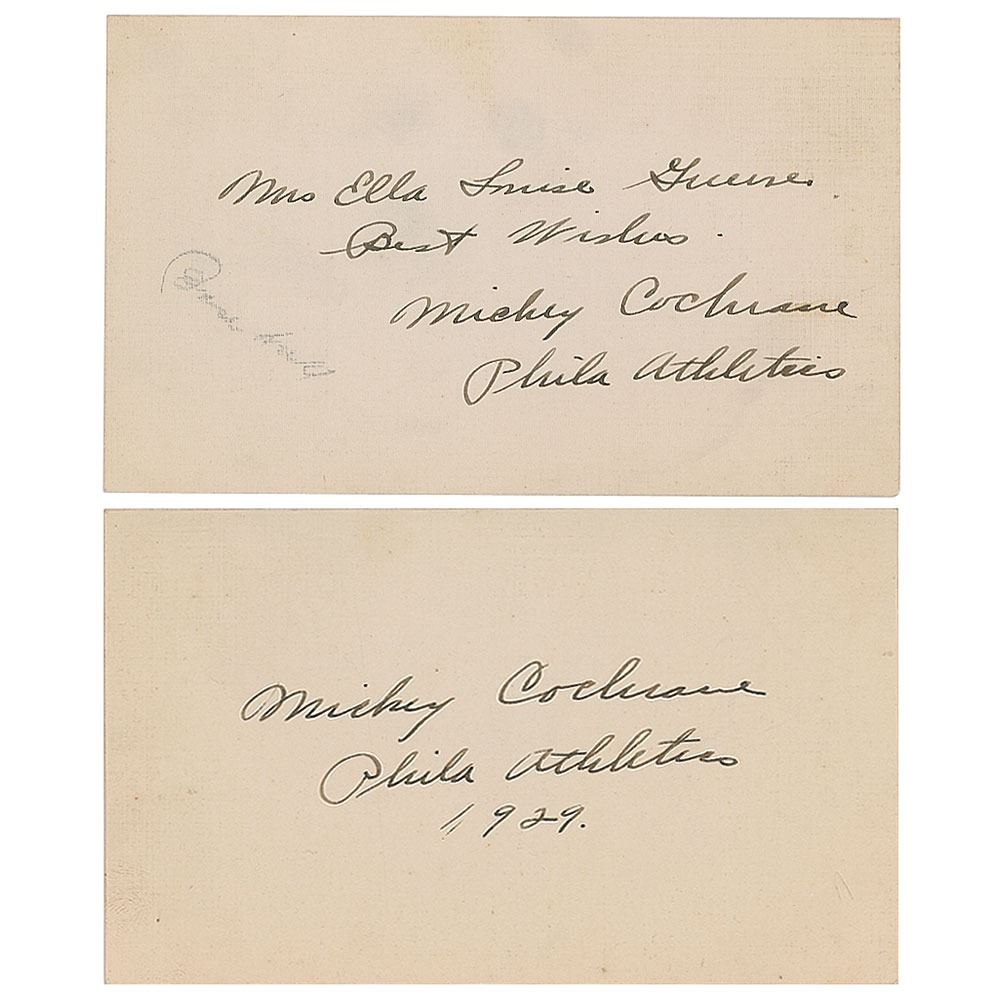 Mrs Ella Louise
Best Wishes.
Mickey Cochrane
Phila Athletics
Mickey Cochrane
Phila Athletics
1929.